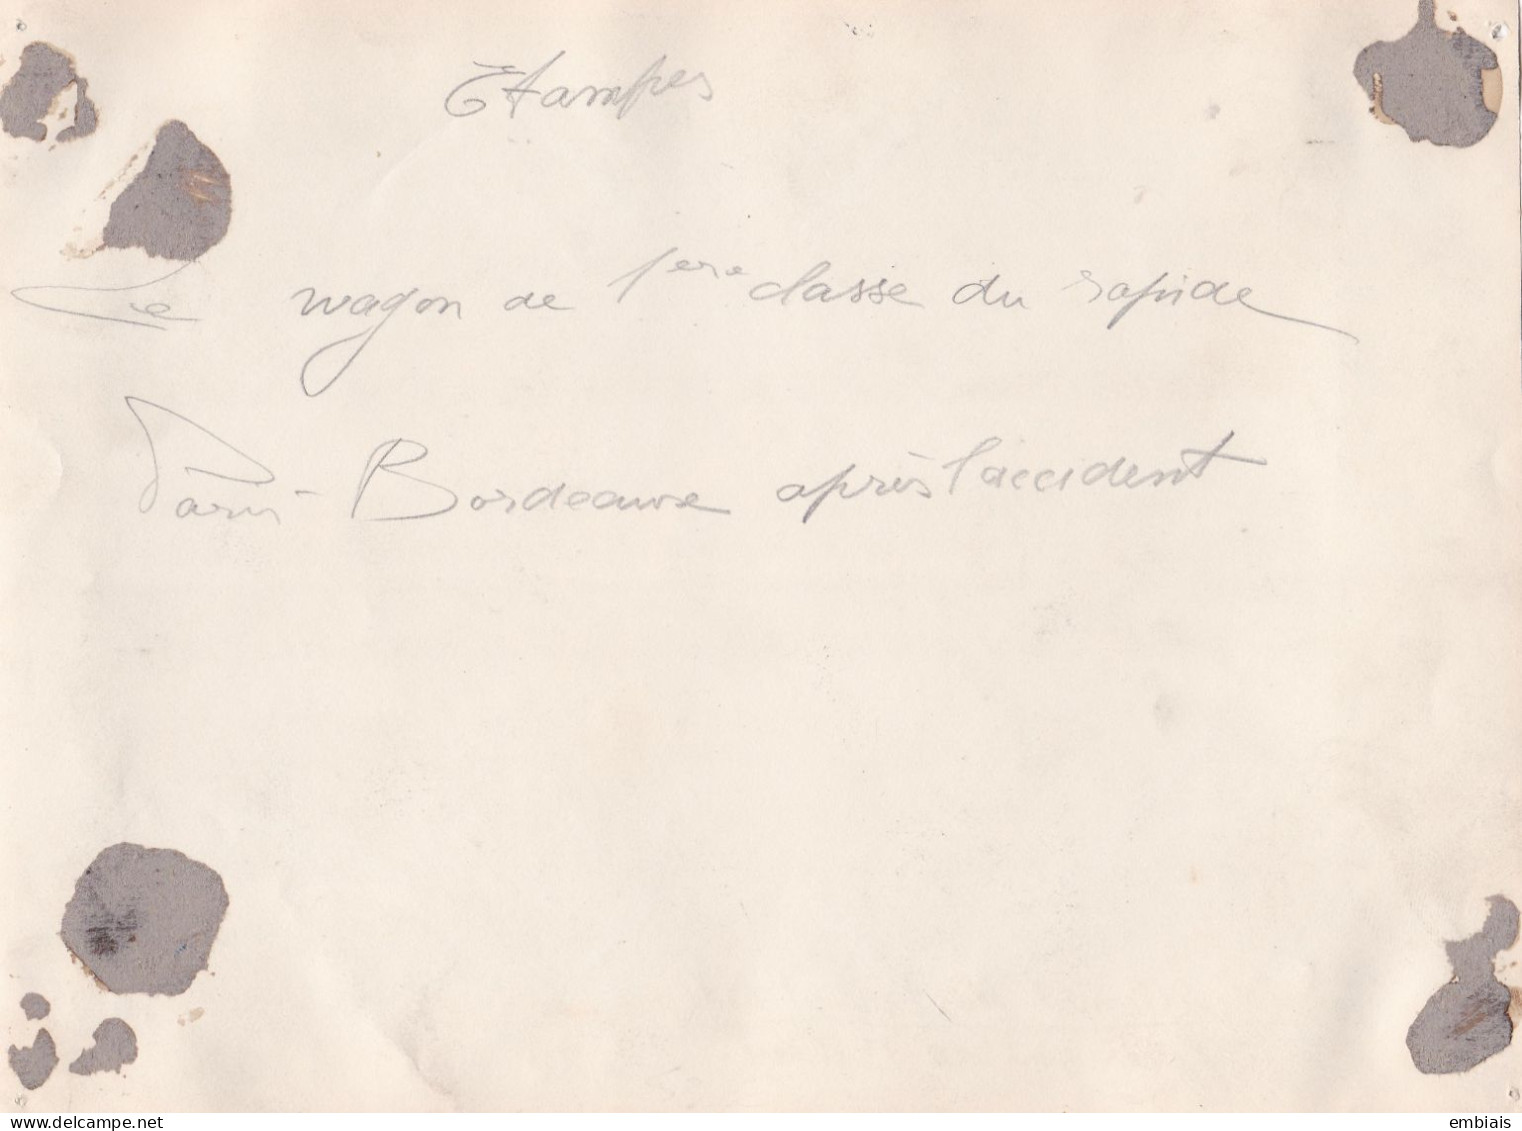 Etampes
Le wagon de 1ere classe du rapide
Paris - Bordeaux après l'accident
www.delcampe.net
embiais